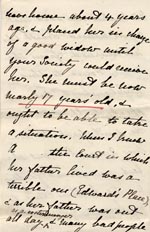 home about 4 years
ago, & placed her in charge
of a good widow until
your Society could receive
her. She must be now
nearly 17 years old, &
ought to be able to take
a situation. When I knew
A the Court in which
her father lived was a
terrible one (Edward's Place)
& as her father was out
all day & many bad people